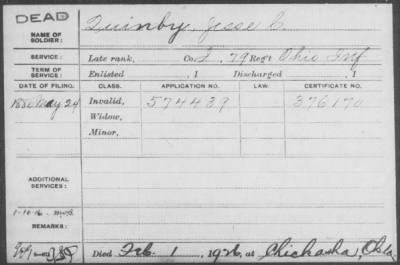 DEAD
NAME OF SOLDIER: Quinby, Jesse C.
SERVICE: Late rank, Co. I, 79 Reg't Ohio Inf
TERM OF SERVICE: Enlisted , 1 Discharged , 1
DATE OF FILING. CLASS. APPLICATION NO. LAW. CERTIFICATE NO.
1886 May 24 Invalid, 574439 376170
Widow,
Minor,
ADDITIONAL SERVICES:
REMARKS:
Died Feb. 1, 1926, at Chickasha, Okla